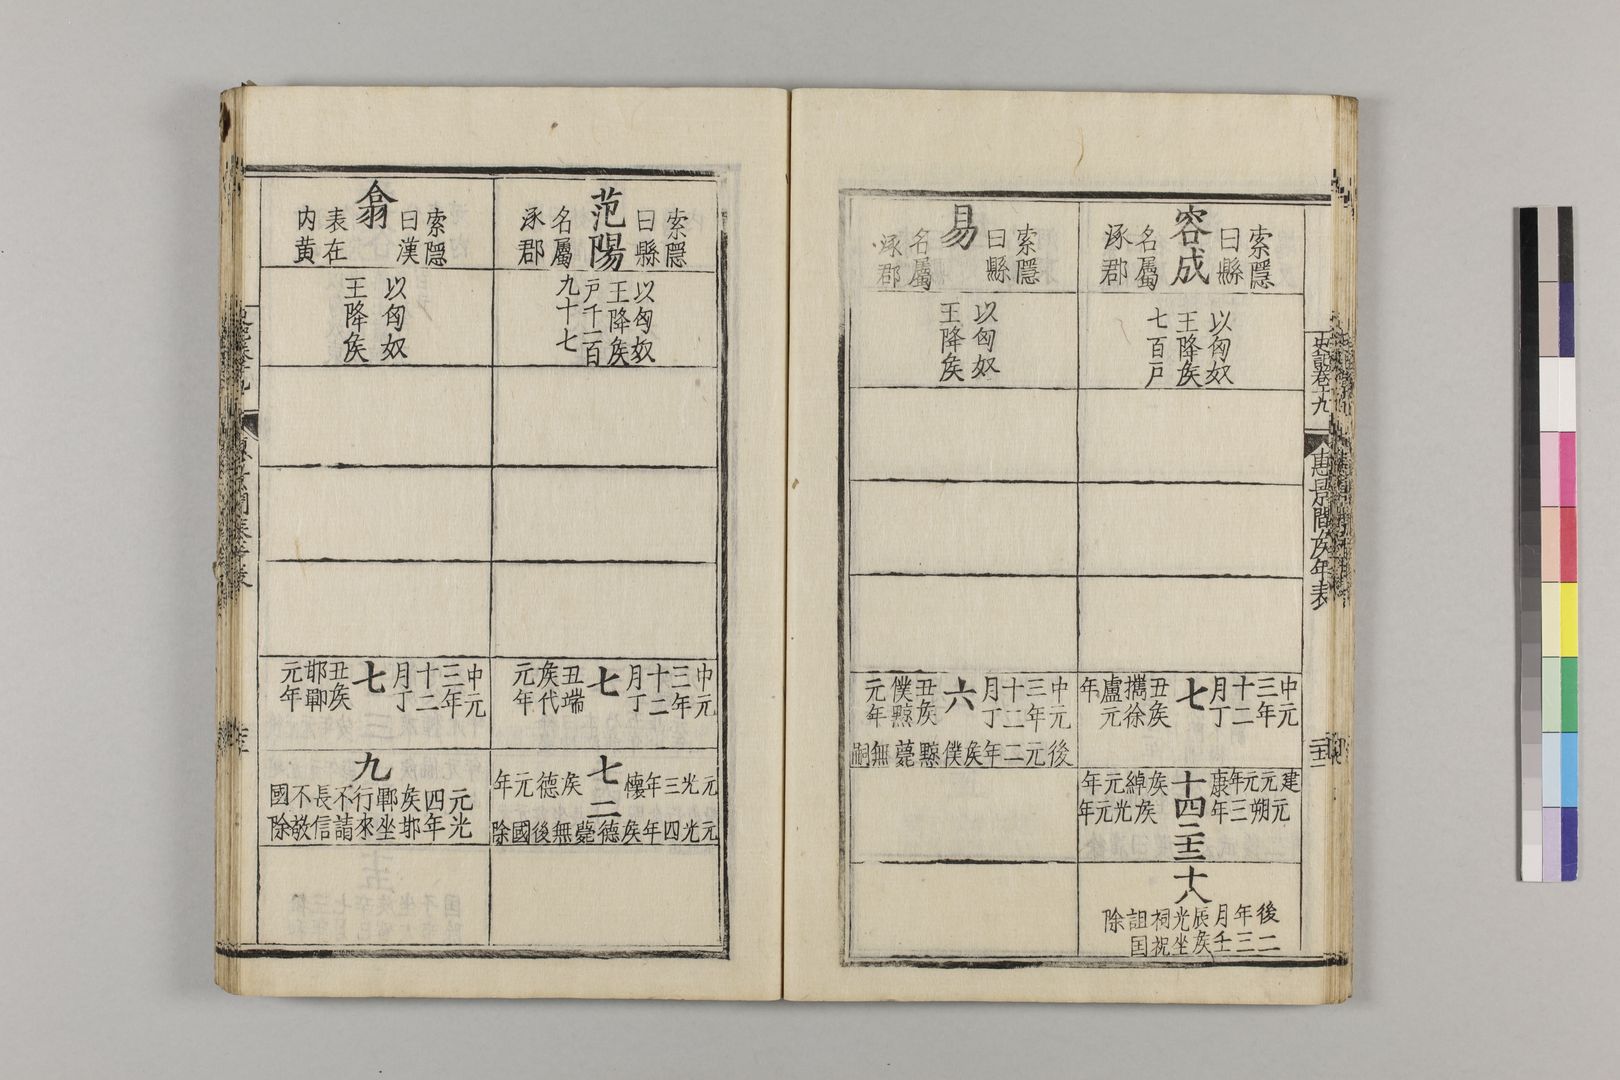 史記卷十九
惠景間侯年表
容成
索隱曰縣
名屬涿郡
以匈奴
王降侯
七百戶
七
中元三年
十二月丁
丑侯
攜徐
盧元
年
十四
建元元年康
侯綽元年
元朔三年
侯光元年
十八
後二
年三
月壬
辰侯
光坐
祠祝
詛国
除
易
索隱曰縣
名屬涿郡
以匈奴
王降侯
六
中元三年
十二月丁
丑侯
僕黥
元年
後元二年侯僕黥薨無嗣
范陽
索隱曰縣
名屬涿郡
以匈奴
王降侯
戶千一百
九十七
七
中元三年
十二月丁
丑端
侯代
元年
七
元光三年懷
侯德元年
二
元光四年侯德薨無後國除
翕
索隱曰漢
表在內黃
以匈奴
王降侯
七
中元三年
十二月丁
丑侯
邯鄲
元年
九
元光
四年
侯邯
鄲坐
行來
不請
長信
不敬
國除